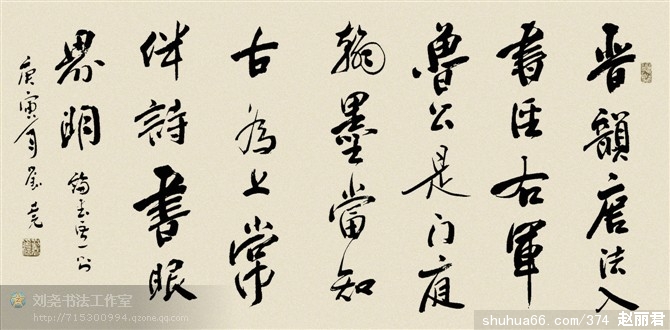 晋韻唐法入
書径右軍
魯公是门庭
翰墨當知
古為上常
伴詩書眼
界明
庚寅
刘尧书法工作室
http://715300994.qzone.qq.com
shuhua66.com/374 赵丽君